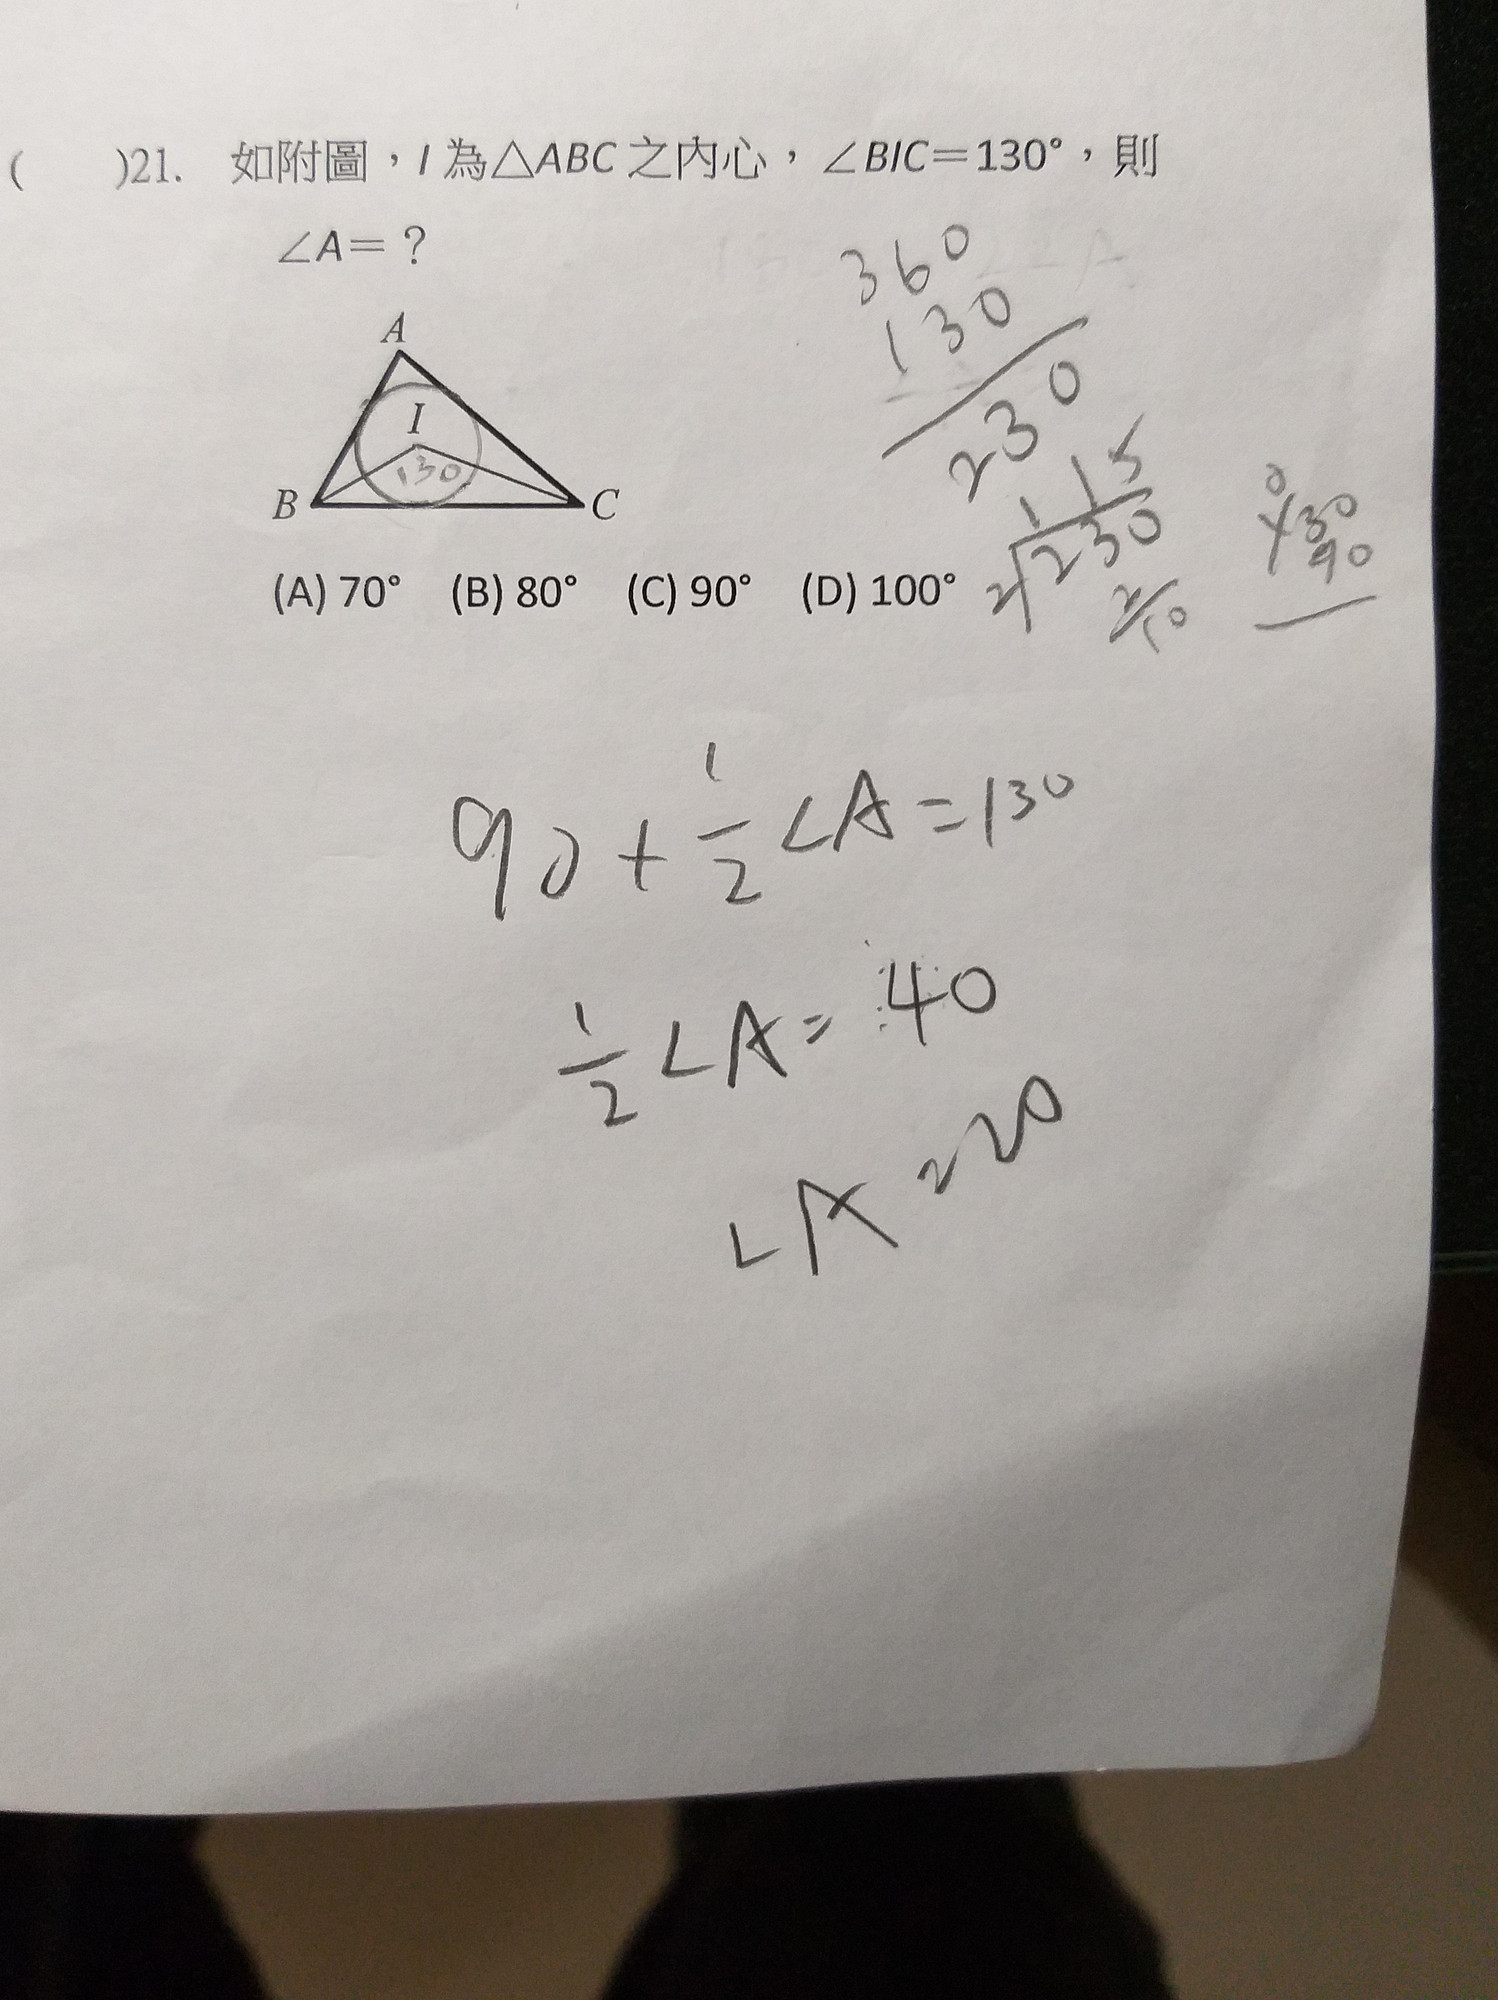 ( )21. 如附圖，I 為△ABC 之內心，∠BIC＝130°，則
∠A＝？
A
I
130
B
C
(A) 70° (B) 80° (C) 90° (D) 100°
360
130
230
115
2 230
2
10
0
130
90
90 + 1/2 ∠A = 130
1/2 ∠A = 40
∠A = 20